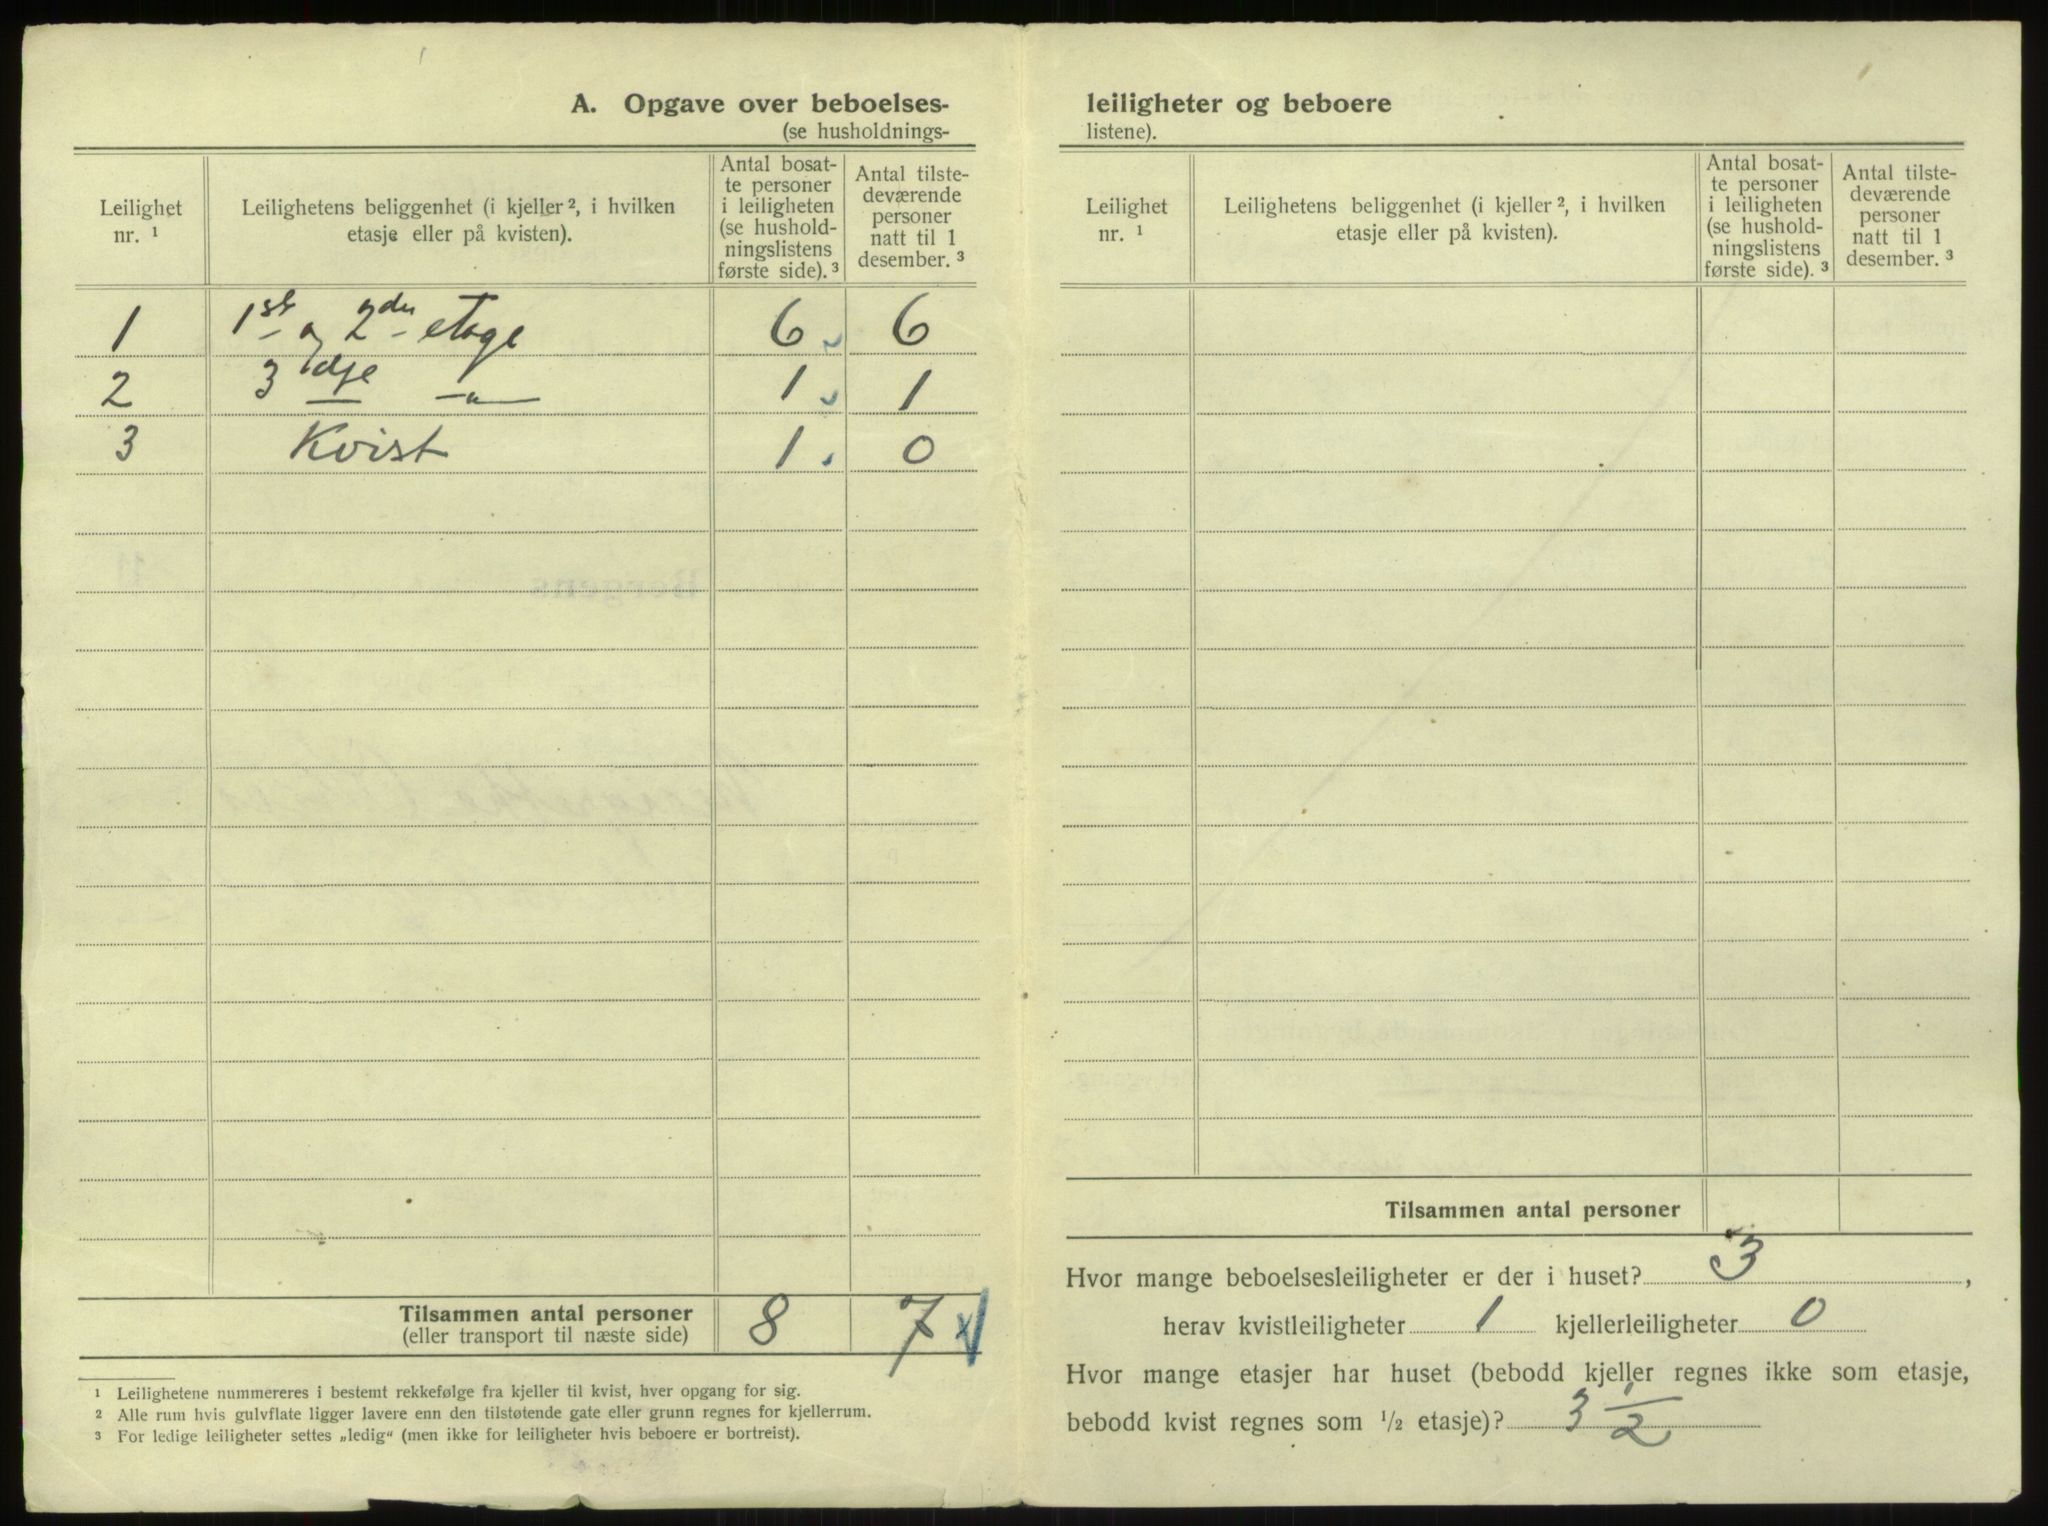 A. Opgave over beboelses-
(se husholdnings-
Leilighet nr. ¹
Leilighetens beliggenhet (i kjeller ², i hvilken etasje eller på kvisten).
Antal bosat-
te personer
i leiligheten
(se hushold-
ningslistens
første side). ³
Antal tilste-
deværende
personer
natt til 1
desember. ³
1 1ste og 2den etage 6 6
2 3dje —„— 1 1
3 Kvist 1 0
Tilsammen antal personer 8 7
(eller transport til næste side)
¹ Leilighetene nummereres i bestemt rekkefølge fra kjeller til kvist, hver opgang for sig.
² Alle rum hvis gulvflate ligger lavere enn den tilstøtende gate eller grunn regnes for kjellerrum.
³ For ledige leiligheter settes „ledig“ (men ikke for leiligheter hvis beboere er bortreist).
leiligheter og beboere
listene).
Leilighet nr. ¹
Leilighetens beliggenhet (i kjeller ², i hvilken etasje eller på kvisten).
Antal bosat-
te personer
i leiligheten
(se hushold-
ningslistens
første side). ³
Antal tilste-
deværende
personer
natt til 1
desember. ³
Tilsammen antal personer
Hvor mange beboelsesleiligheter er der i huset? 3,
herav kvistleiligheter 1 kjellerleiligheter 0
Hvor mange etasjer har huset (bebodd kjeller regnes ikke som etasje,
bebodd kvist regnes som ½ etasje)? 3 ½